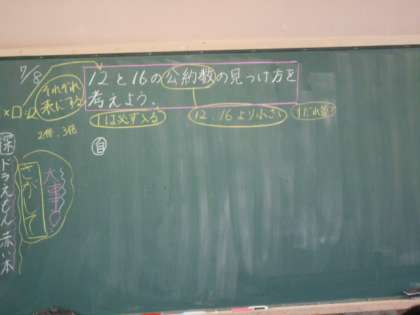 7/8
12と16の公約数の見つけ方を
考えよう。
それぞれ
表にする
×□
2倍、3倍
1は必ず入る
12、16より小さい
自
大事
さがして
ドラえもん 赤い本